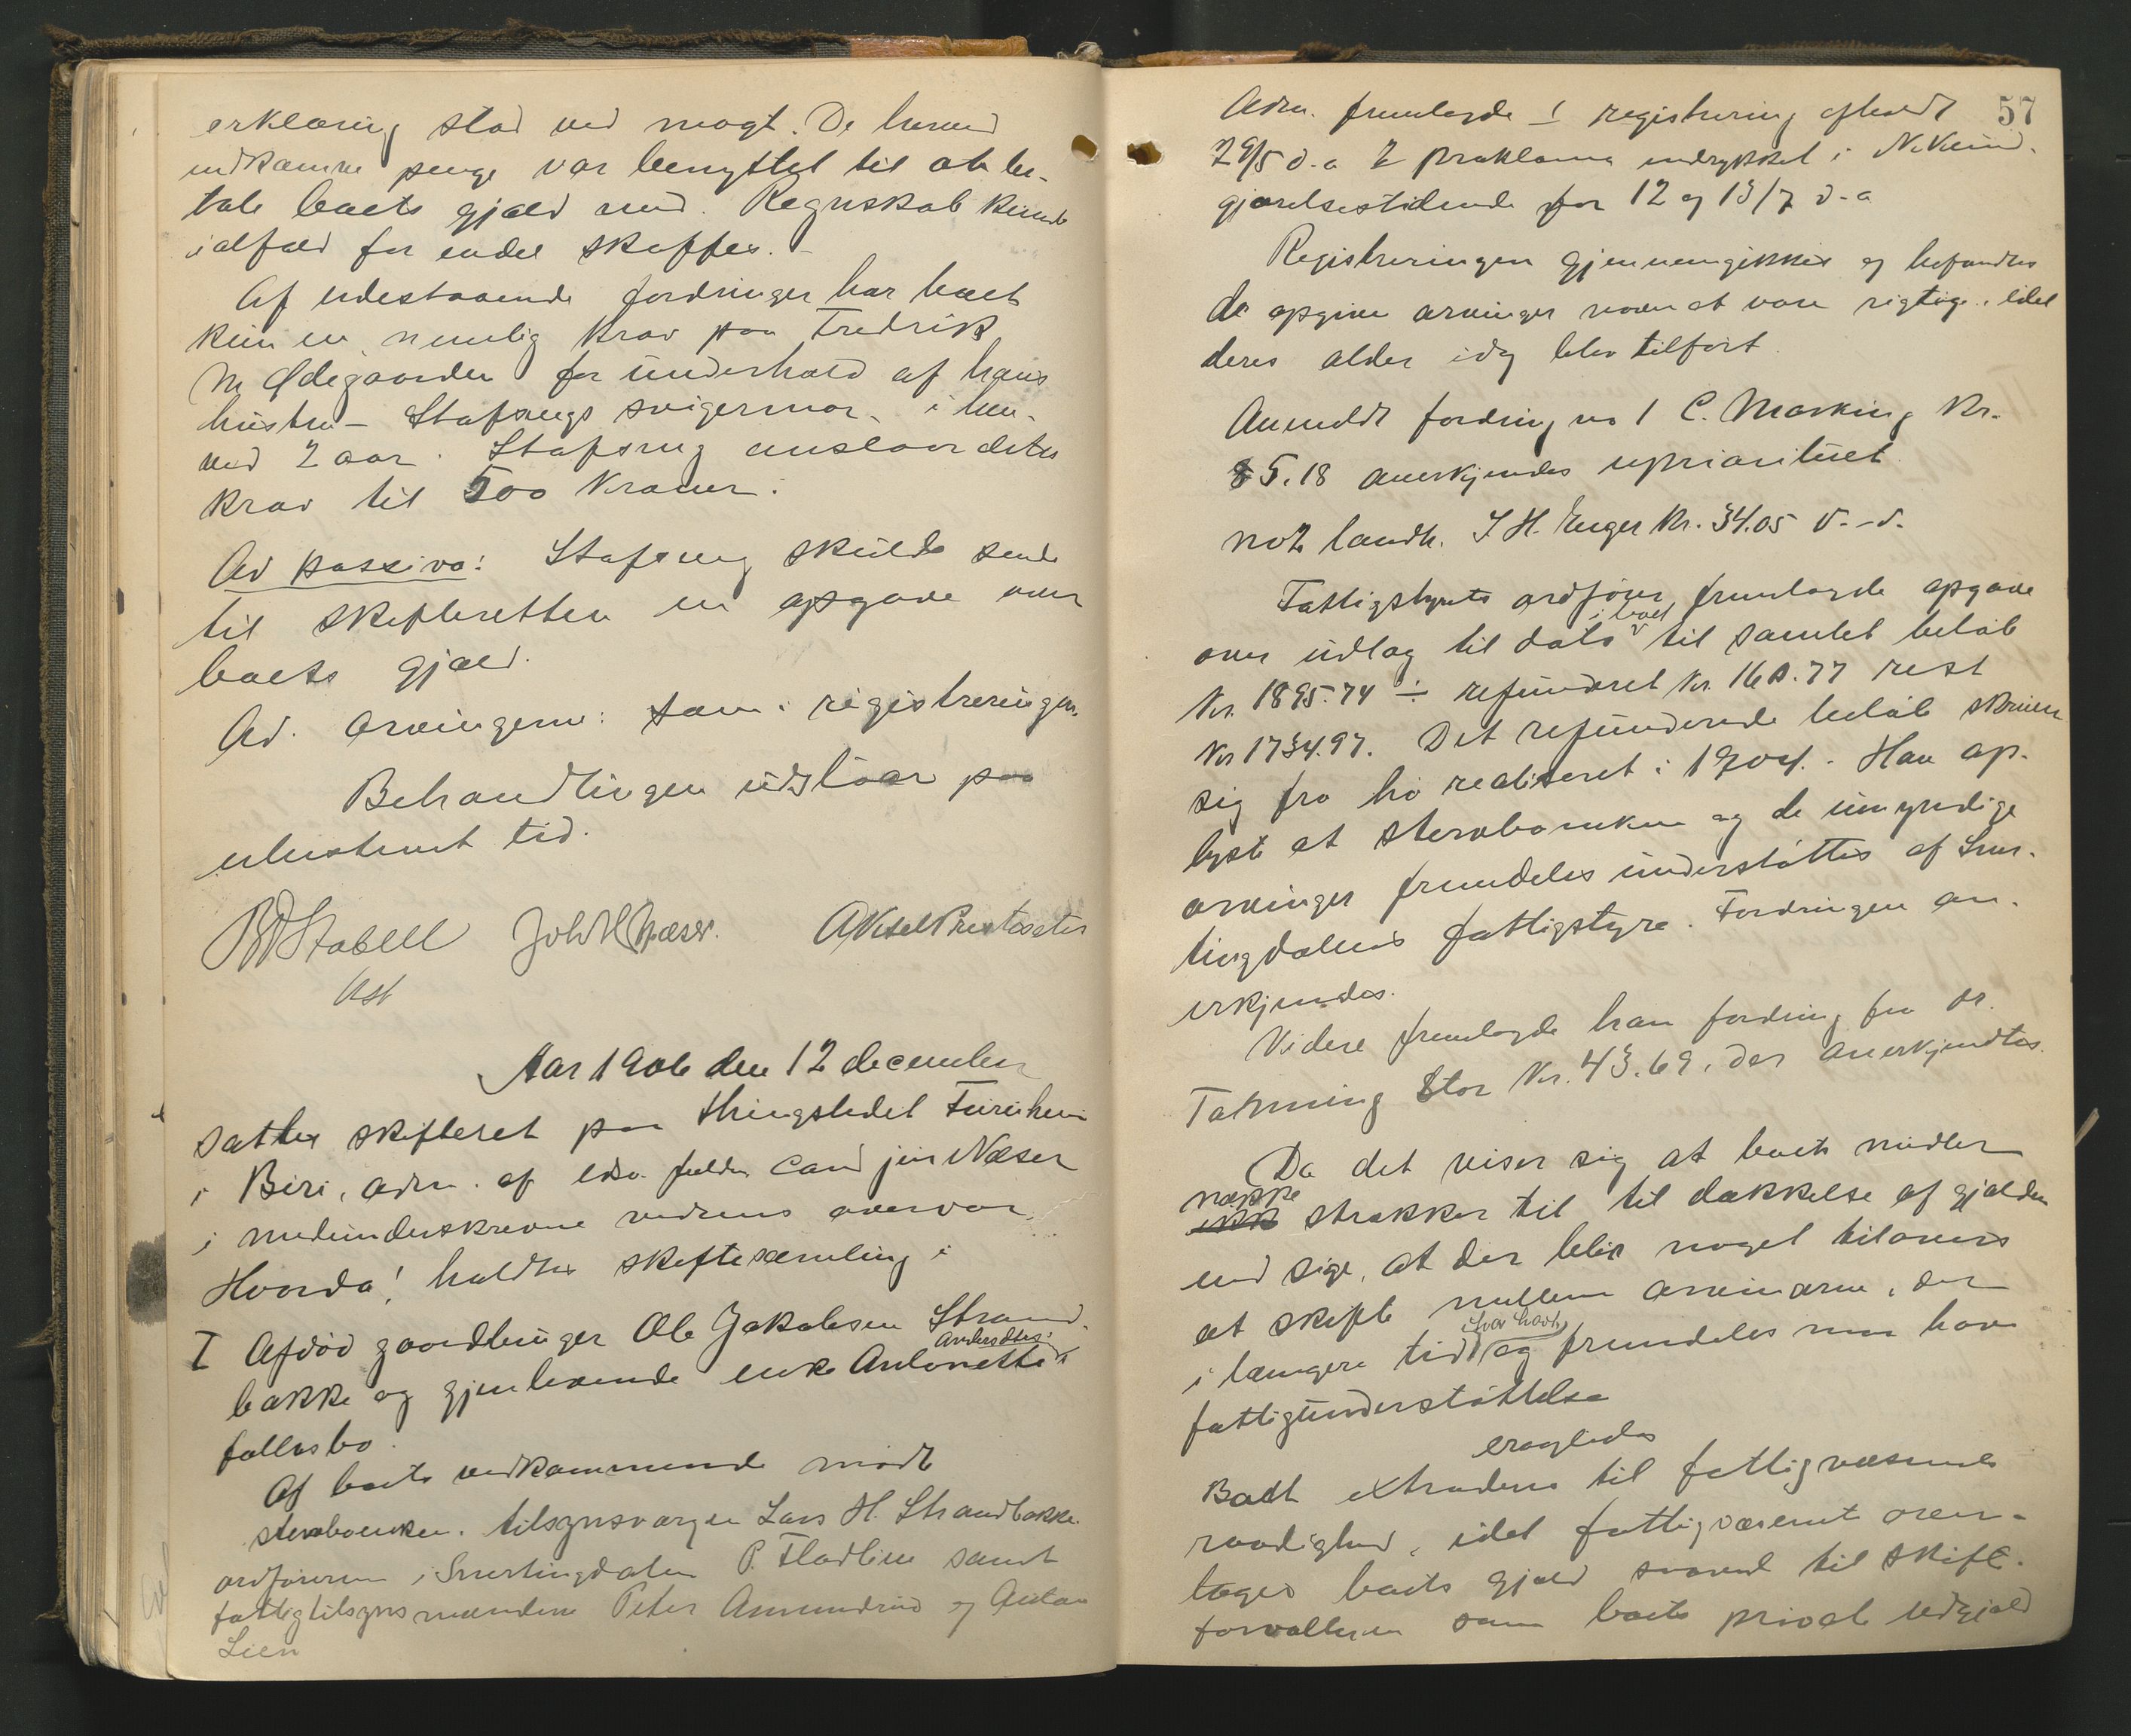 erklæring stod ved magt. De herved
indkomne penge var benyttet til at be-
tale boets gjæld med. Regnskab kunde
ialfald for endel skaffes. -
Af udestaaende fordringer har boet
kun en, nemlig krav paa Fredrik
M Ødegaarden for underhold af hans
hustru - Stafsengs svigermor - i hen-
ved 2 aar. Stafseng anslaar dette
krav til 500 kroner.
Ad passiva: Stafseng skulde sende
til skifteretten en opgave over
boets gjæld.
Ad. arvingerne: som i registreringen.
Behandlingen udstaar paa
ubestemt tid.
Stabell Joh N Næser. Aksel
Ast
Aar 1906 den 12 december
sattes skifteret paa thingstedet Furuheim
i Biri, adm. af edsv. fuldm. cand jur Næser
i medunderskrevne vidners overvær.
Hvorda! holdtes skiftesamling i
I Afdød gaardbruger Ole Jakobsen Strand-
Andersdtrs.
bakke og gjenlevende enke Antonette
fællesbo.
Af boets vedkommende mødte
stervboenken. tilsynsværgen Lars H. Strandbakke.
ordføreren i Snertingdalen P. Fladlien samt
fattigtilsynsmændene Peter Amundrud og Anton
Lien
57
Adm. fremlagde 1 registrering afholdt
29/5 d.a 2 proklama indrykket i N. Kund-
gjørelsestidende for 12 og 13/7 d.a
Registreringen gjennemgikkes og befandtes
de opgivne arvinger at være rigtige, idet
deres alder idag blev tilført
Anmeldt fordring no 1 C. Mørking Kr.
85.18 anerkjendes uprioriteret
no 2 landh. J H. Enger Kr. 34.05 d. - d.
Fattigstyrets ordfører fremlagde opgave
i boet
over udlæg til dato til samlet beløb
Kr. 1895.74 ÷ refunderet Kr. 160.77 rest
Kr 1734.97. Det refunderede beløb skriver
sig fra hø realiseret i 1904. Han op-
lyste at stervboenken og de umyndige
arvinger fremdeles understøttes af Sner-
tingdalens fattigstyre. Fordringen an-
erkjendes.
Videre fremlagde han fordring fra dr.
Tanning stor Kr. 43.69, der anerkjendtes.
Da det viser sig at boets midler
næppe
ikke strækker til til dækkelse af gjælden
end sige, at der blir noget tilovers
at skifte mellem arvingerne, der
har havt
i længere tid og fremdeles maa have
fattigunderstøttelse
Boet extraderes til fattigvæsenets
raadighed, idet fattigvæsenet over-
tager boets gjæld svarende til skifte-
forvalteren som boets private udgjæld